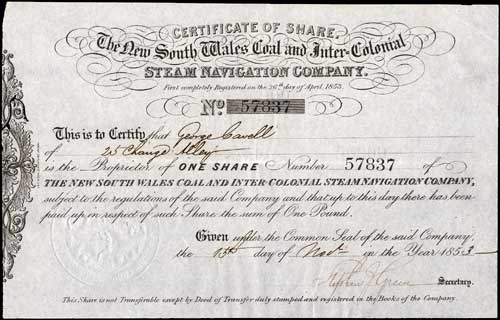 CERTIFICATE OF SHARE.
The New South Wales Coal and Inter-Colonial
STEAM NAVIGATION COMPANY.
First completely Registered on the 26th day of April, 1853.
No 57837
This is to Certify that George Cavell
of 25 Change Alley
is the Proprietor of ONE SHARE Number 57837 of
THE NEW SOUTH WALES COAL AND INTER-COLONIAL STEAM NAVIGATION COMPANY,
subject to the regulations of the said Company and that up to this day there has been
paid up in respect of such Share the sum of One Pound.
Given under the Common Seal of the said Company,
the 15th day of Novr in the Year 1853
Green Secretary.
This Share is not Transferable except by Deed of Transfer duly stamped and registered in the Books of the Company.